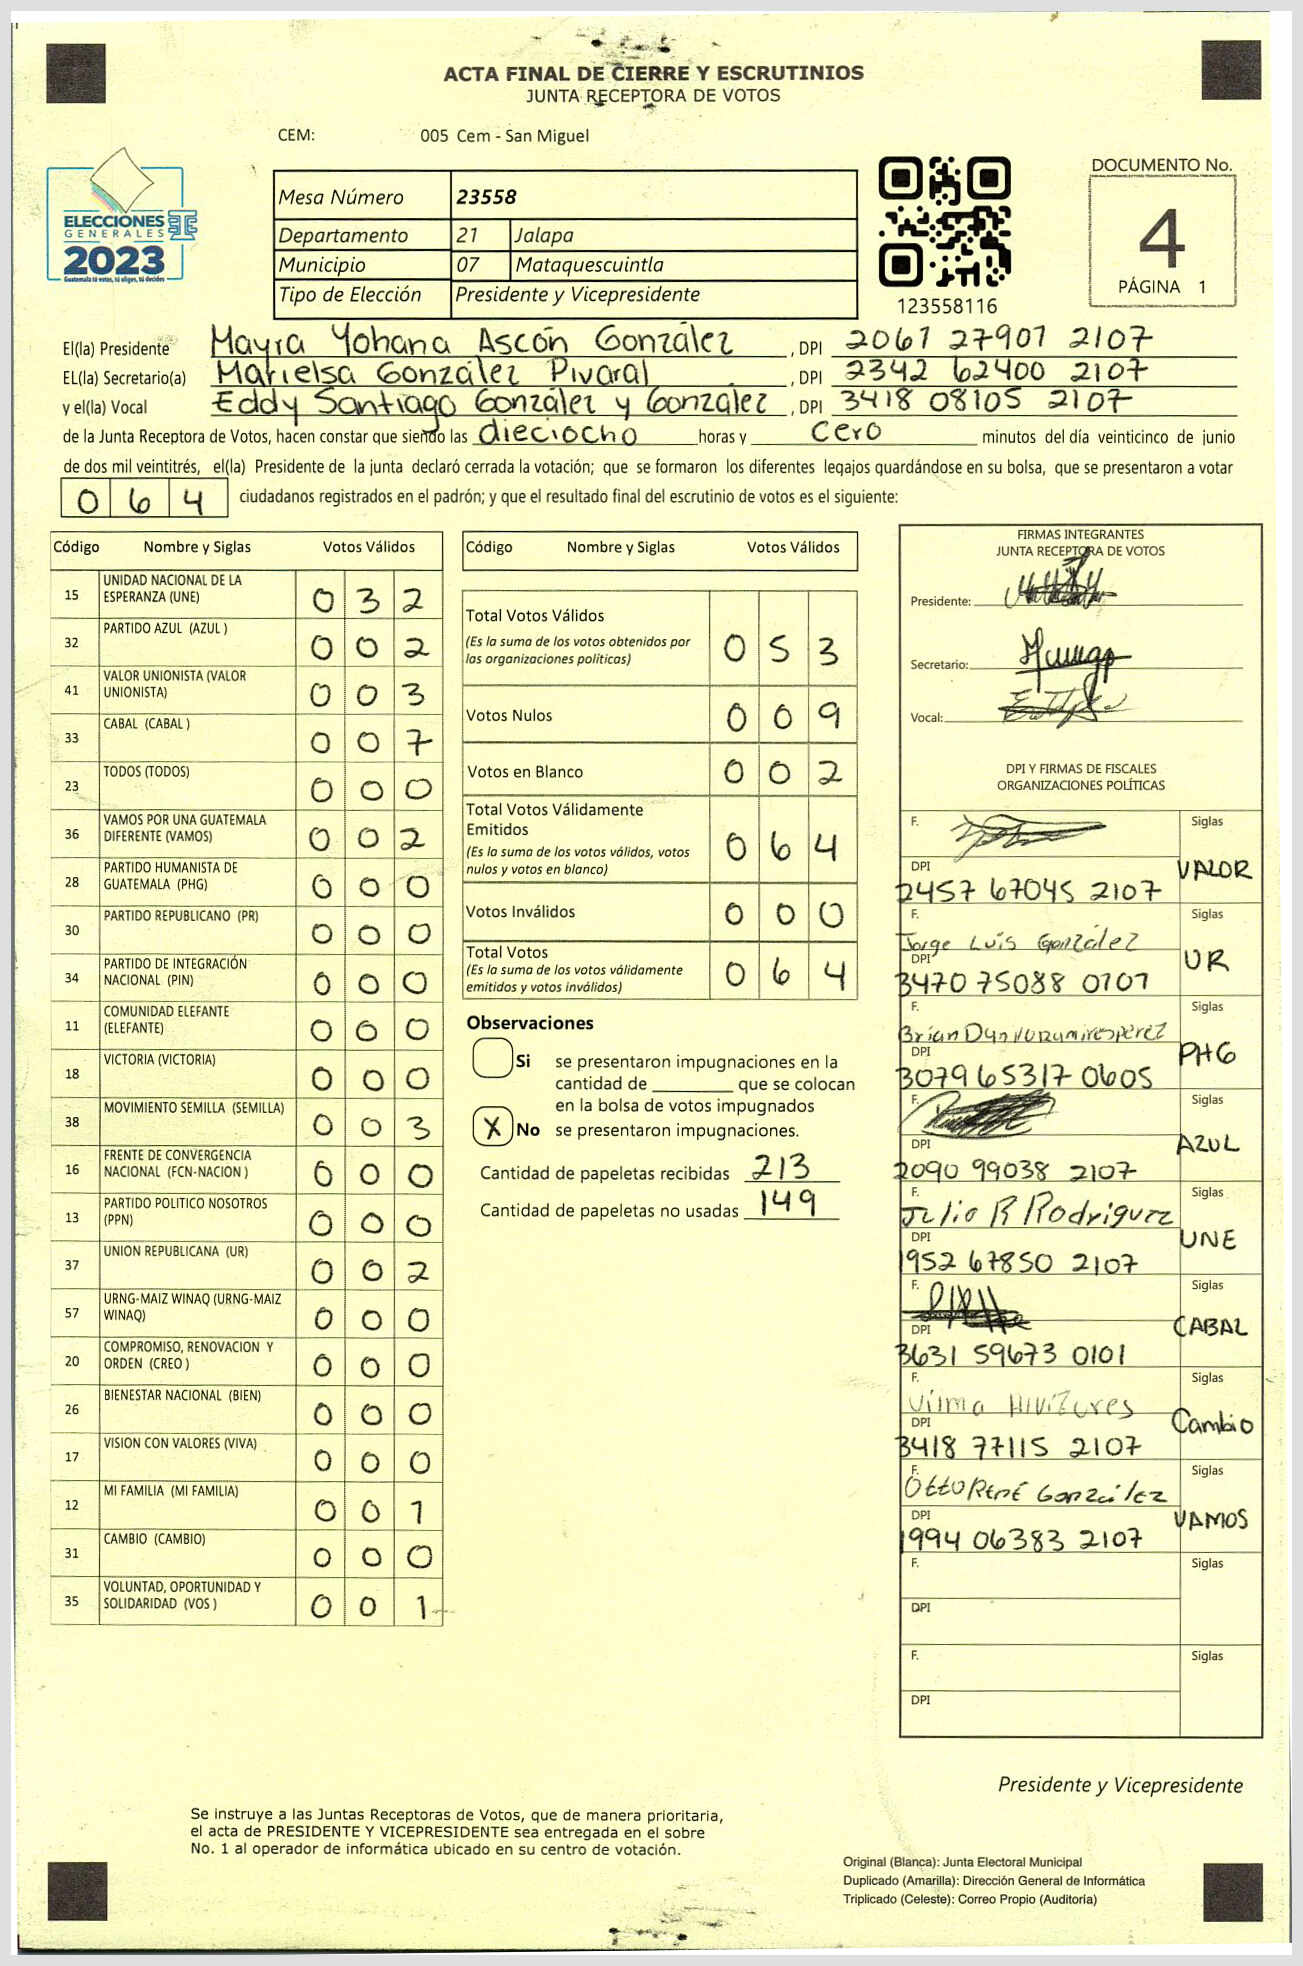 ACTA FINAL DE CIERRE Y ESCRUTINIOS
JUNTA RECEPTORA DE VOTOS
CEM: 005 Cem - San Miguel
ELECCIONES
GENERALES
2023
Guatemala tú votas, tú eliges, tú decides
Mesa Número 23558
Departamento 21 Jalapa
Municipio 07 Mataquescuintla
Tipo de Elección Presidente y Vicepresidente
123558116
DOCUMENTO No.
4
PÁGINA 1
El(la) Presidente Mayra Yohana Ascón González , DPI 2061 27907 2107
EL(la) Secretario(a) Marielsa González Pivaral , DPI 2342 62400 2107
y el(la) Vocal Eddy Santiago González y González , DPI 3418 08105 2107
de la Junta Receptora de Votos, hacen constar que siendo las dieciocho horas y cero minutos del día veinticinco de junio
de dos mil veintitrés, el(la) Presidente de la junta declaró cerrada la votación; que se formaron los diferentes legajos guardándose en su bolsa, que se presentaron a votar
0 6 4 ciudadanos registrados en el padrón; y que el resultado final del escrutinio de votos es el siguiente:
Código Nombre y Siglas Votos Válidos
15 UNIDAD NACIONAL DE LA ESPERANZA (UNE) 0 3 2
32 PARTIDO AZUL (AZUL ) 0 0 2
41 VALOR UNIONISTA (VALOR UNIONISTA) 0 0 3
33 CABAL (CABAL ) 0 0 7
23 TODOS (TODOS) 0 0 0
36 VAMOS POR UNA GUATEMALA DIFERENTE (VAMOS) 0 0 2
28 PARTIDO HUMANISTA DE GUATEMALA (PHG) 0 0 0
30 PARTIDO REPUBLICANO (PR) 0 0 0
34 PARTIDO DE INTEGRACIÓN NACIONAL (PIN) 0 0 0
11 COMUNIDAD ELEFANTE (ELEFANTE) 0 0 0
18 VICTORIA (VICTORIA) 0 0 0
38 MOVIMIENTO SEMILLA (SEMILLA) 0 0 3
16 FRENTE DE CONVERGENCIA NACIONAL (FCN-NACION ) 0 0 0
13 PARTIDO POLITICO NOSOTROS (PPN) 0 0 0
37 UNION REPUBLICANA (UR) 0 0 2
57 URNG-MAIZ WINAQ (URNG-MAIZ WINAQ) 0 0 0
20 COMPROMISO, RENOVACION Y ORDEN (CREO ) 0 0 0
26 BIENESTAR NACIONAL (BIEN) 0 0 0
17 VISION CON VALORES (VIVA) 0 0 0
12 MI FAMILIA (MI FAMILIA) 0 0 1
31 CAMBIO (CAMBIO) 0 0 0
35 VOLUNTAD, OPORTUNIDAD Y SOLIDARIDAD (VOS ) 0 0 1
Código Nombre y Siglas Votos Válidos
Total Votos Válidos
(Es la suma de los votos obtenidos por
las organizaciones políticas) 0 5 3
Votos Nulos 0 0 9
Votos en Blanco 0 0 2
Total Votos Válidamente
Emitidos
(Es la suma de los votos válidos, votos
nulos y votos en blanco) 0 6 4
Votos Inválidos 0 0 0
Total Votos
(Es la suma de los votos válidamente
emitidos y votos inválidos) 0 6 4
Observaciones
Si se presentaron impugnaciones en la
cantidad de ________ que se colocan
en la bolsa de votos impugnados
X No se presentaron impugnaciones.
Cantidad de papeletas recibidas 213
Cantidad de papeletas no usadas 149
FIRMAS INTEGRANTES
JUNTA RECEPTORA DE VOTOS
Presidente:
Secretario:
Vocal:
DPI Y FIRMAS DE FISCALES
ORGANIZACIONES POLÍTICAS
F. Siglas
DPI VALOR
2457 67045 2107
F. Siglas
Jorge Luis González
DPI UR
3470 75088 0101
F. Siglas
Brian
DPI PHG
3079 65317 0605
F. Siglas
DPI AZUL
2090 99038 2107
F. Siglas
Julio R Rodriguez
DPI UNE
1952 67850 2107
F. Siglas
DPI CABAL
3631 59673 0101
F. Siglas
Vilma
DPI Cambio
3418 77115 2107
F. Siglas
Otto René González
DPI VAMOS
1994 06383 2107
F. Siglas
DPI
F. Siglas
DPI
Presidente y Vicepresidente
Se instruye a las Juntas Receptoras de Votos, que de manera prioritaria,
el acta de PRESIDENTE Y VICEPRESIDENTE sea entregada en el sobre
No. 1 al operador de informática ubicado en su centro de votación.
Original (Blanca): Junta Electoral Municipal
Duplicado (Amarilla): Dirección General de Informática
Triplicado (Celeste): Correo Propio (Auditoría)